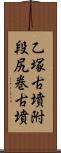 乙塚古墳附
段尻巻古墳